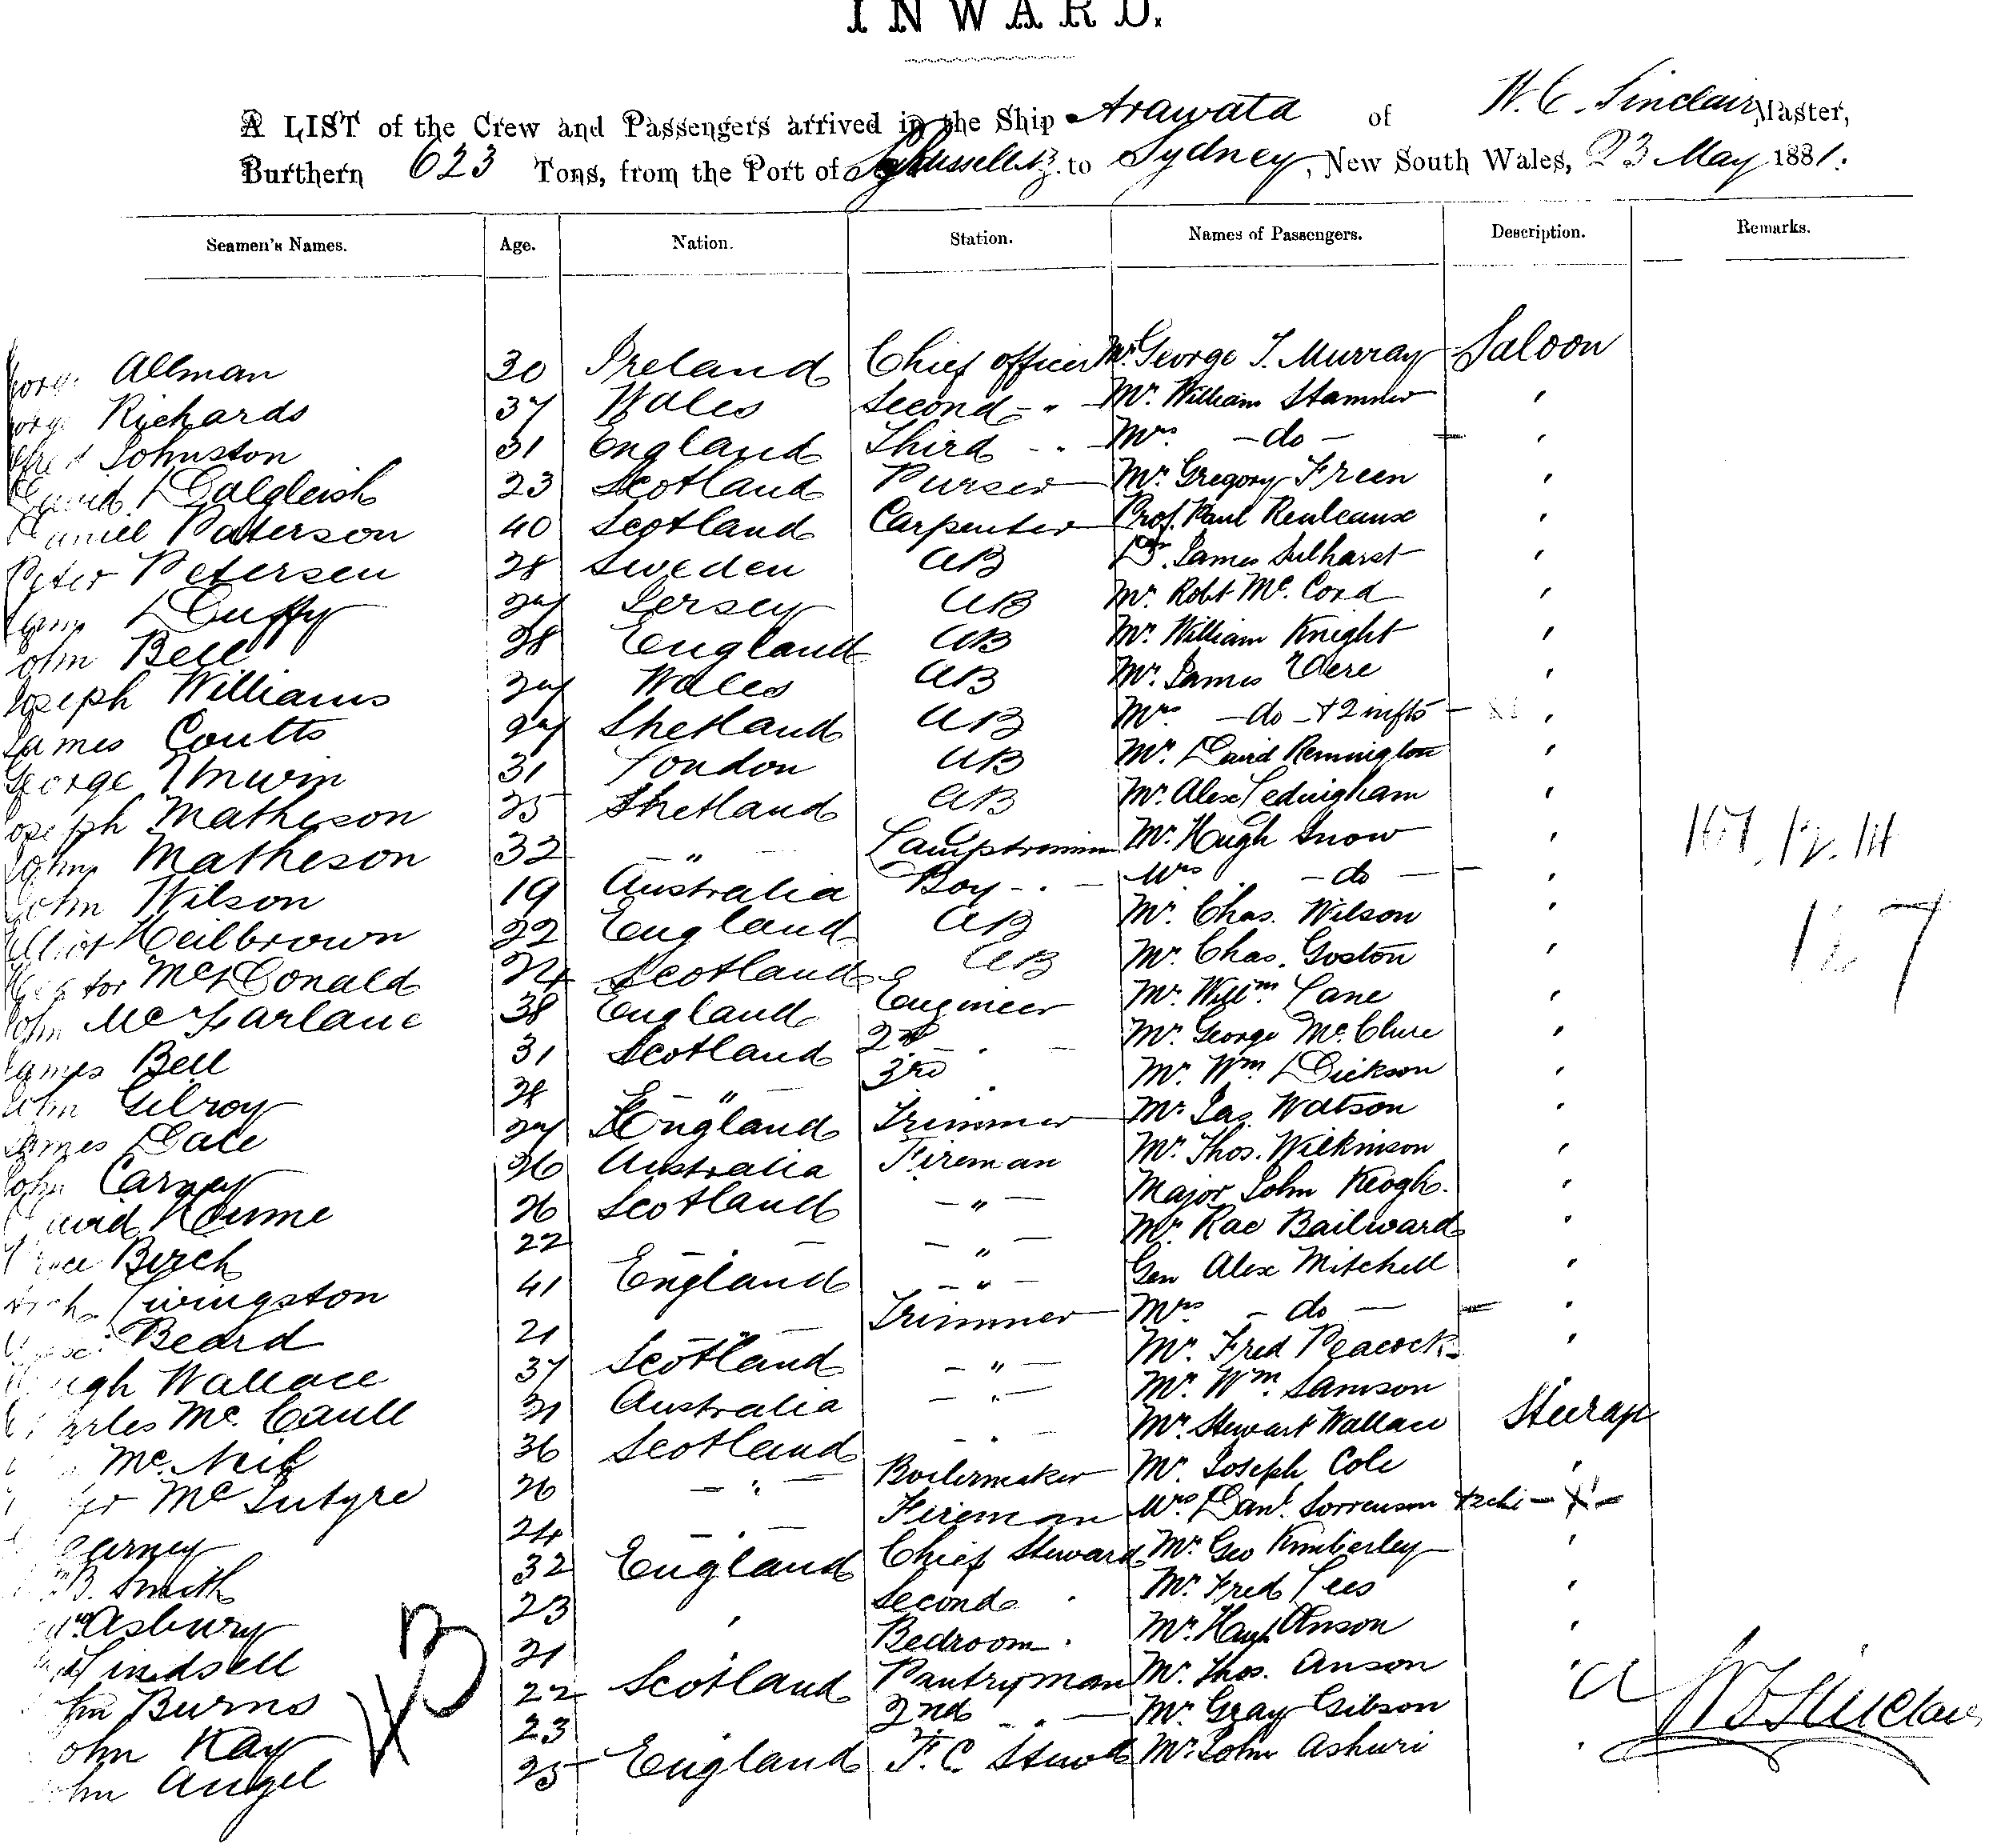 INWARD.
A LIST of the Crew and Passengers arrived in the Ship Arawata of W. C. Sinclair Master,
Burthern 623 Tons, from the Port of to Sydney, New South Wales, 23 May 1881.
Seamen's Names. Age. Nation. Station. Names of Passengers. Description. Remarks.
Allman 30 Ireland Chief officer Mr. George T. Murray Saloon
Richards 37 Wales Second - " - Mr. William Stanner "
Johnston 31 England Third - " - Mrs. - do - "
David Dalgleish 23 Scotland Purser Mr. Gregory Freen "
Daniel Paterson 40 Scotland Carpenter Prof. Paul Reuleaux "
Peter Petersen 28 Sweden AB Dr. James "
Duffy 27 Jersey AB Mr. Robt Mc. Cord "
John Bell 28 England AB Mr. William Knight "
Joseph Williams 27 Wales AB Mr. James Vere "
James Coutts 27 Shetland AB Mrs - do - + 2 infts "
George 31 London AB Mr. David Remington "
Joseph Matheson 25 Shetland AB Mr. Alex Ledingham "
John Matheson 32 - " - Lamptrimmer Mr. Hugh Snow "
John Wilson 19 Australia Boy - " - Mrs - do - "
Heilbrown 22 England AB Mr. Chas. Wilson "
Hector McDonald 24 Scotland AB Mr. Chas. Goston "
John McFarlane 38 England Engineer Mr. Willm. Lane "
James Bell 31 Scotland 2nd " Mr. George McClure "
John Gilroy 28 - " - 3rd " Mr. Wm Dickson "
James Dale 27 England Trimmer Mr. Jas Watson "
John Carney 26 Australia Fireman Mr. Thos. Wilkinson "
David Hume 26 Scotland - " - Major John Keogh. "
Birch 22 - " - - " - Mr. Rae Bailward "
Livingston 41 England - " - Gen Alex Mitchell "
Beard 21 - " - Trimmer Mrs - do - "
Hugh Wallace 37 Scotland - " - Mr. Fred Peacock "
Charles Mc. Caull 31 Australia - " - Mr. Wm. Samson
Mc. Neil 36 Scotland - " - Mr. Stewart Wallace Steerage
Mc Intyre 26 - " - Boilermaker Mr. Joseph Cole "
Carney 24 - " - Fireman Mrs Danl. Sorrenson
B. Smith 32 England Chief Steward Mr. Geo Kimberley "
Asbury 23 " Second " Mr. Fred Lees "
Lindsell 21 Bedroom " Mr. Hugh Anson "
John Burns 22 Scotland Pantryman Mr. Thos. Anson "
John Kay 23 2nd " Mr. Gray Gibson
John Angel 25 England F. C. Stewd Mr. John Ashuri "
W C Sinclair